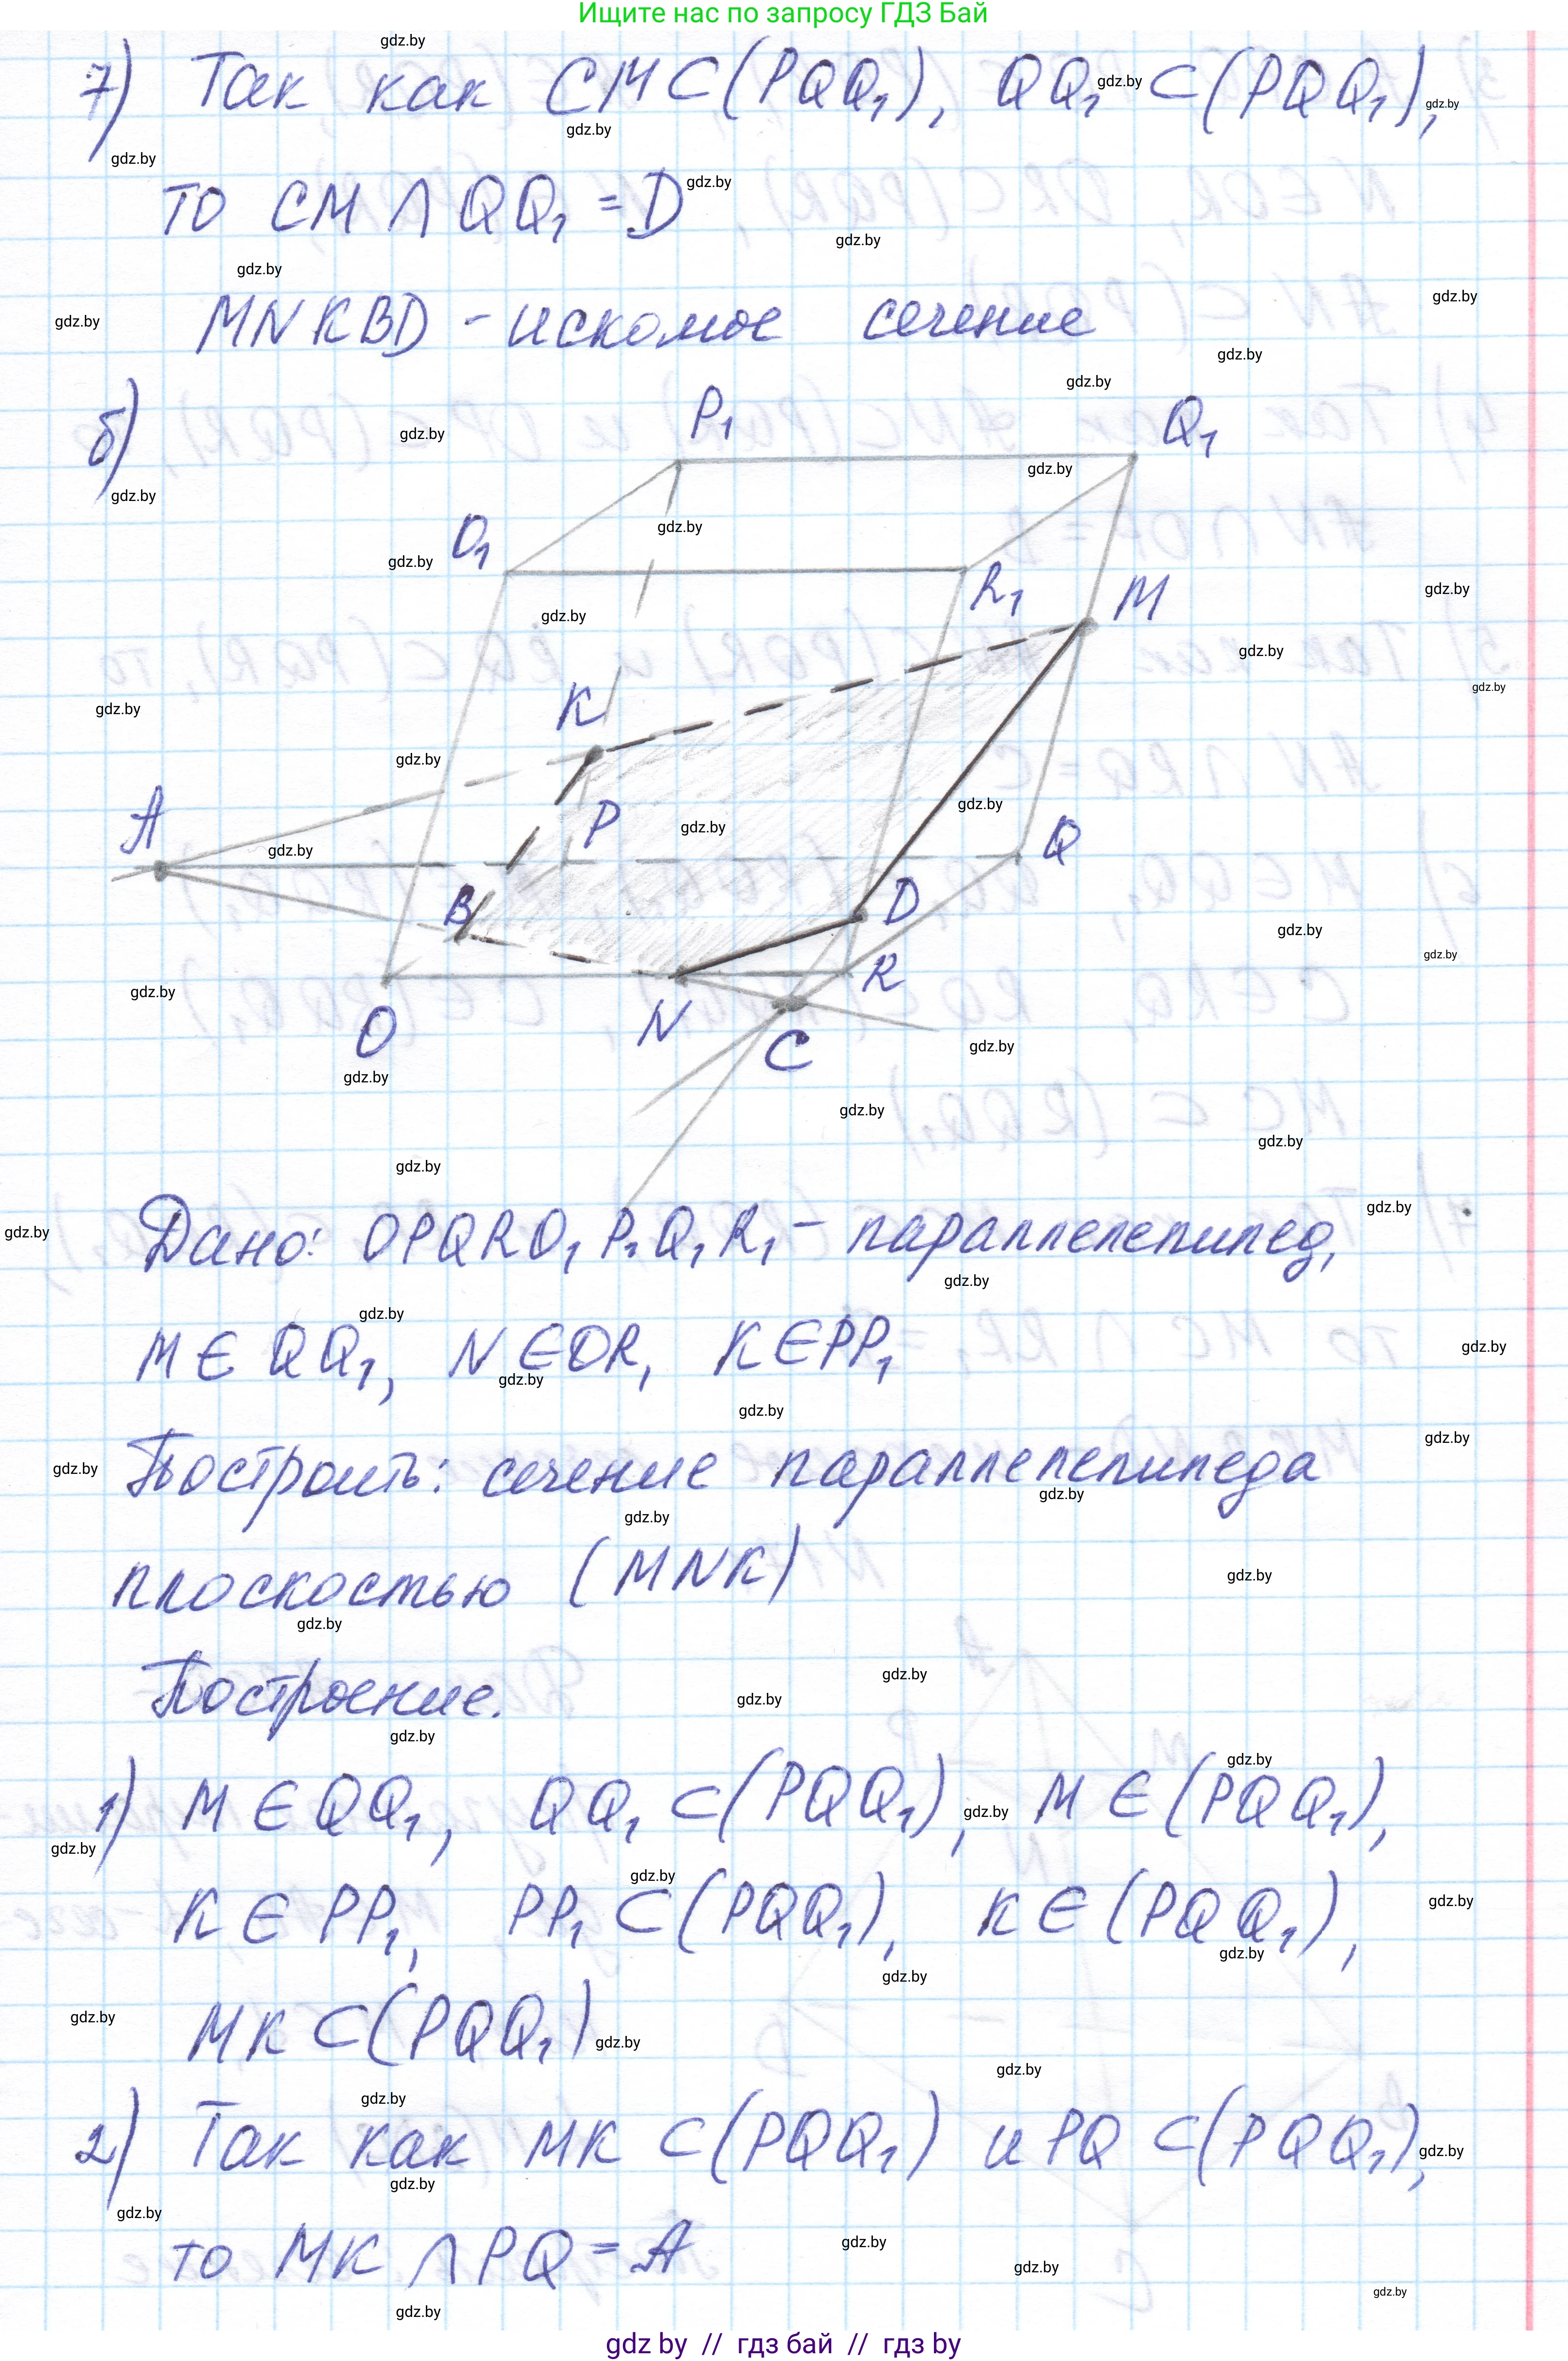 Ищите нас по запросу ГДЗ Бай
7) Так как CM⊂(PQQ₁), QQ₁⊂(PQQ₁),
то CM ∩ QQ₁ = D
MNKBD - искомое сечение
б)
P₁
Q₁
O₁
R₁
M
K
A
P
Q
B
D
R
O
N
C
Дано: OPQRO₁P₁Q₁R₁ - параллелепипед,
M ∈ QQ₁, N ∈ OR, K ∈ PP₁
Построить: сечение параллелепипеда
плоскостью (MNK)
Построение.
1) M ∈ QQ₁, QQ₁ ⊂ (PQQ₁), M ∈ (PQQ₁),
K ∈ PP₁, PP₁ ⊂ (PQQ₁), K ∈ (PQQ₁),
MK ⊂ (PQQ₁)
2) Так как MK ⊂ (PQQ₁) и PQ ⊂ (PQQ₁),
то MK ∩ PQ = A
gdz by // гдз бай // гдз by